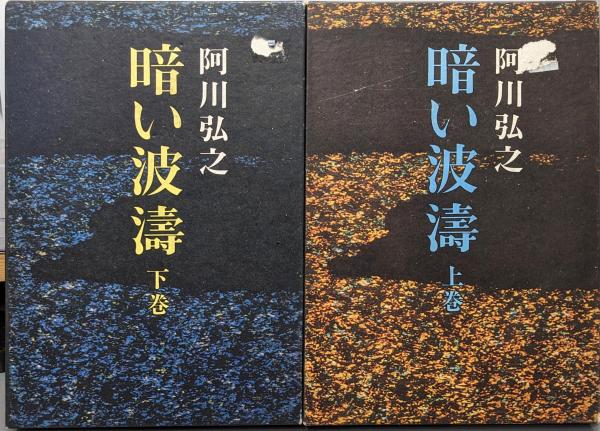 阿川弘之
暗い波濤
下巻
阿川弘之
暗い波濤
上巻